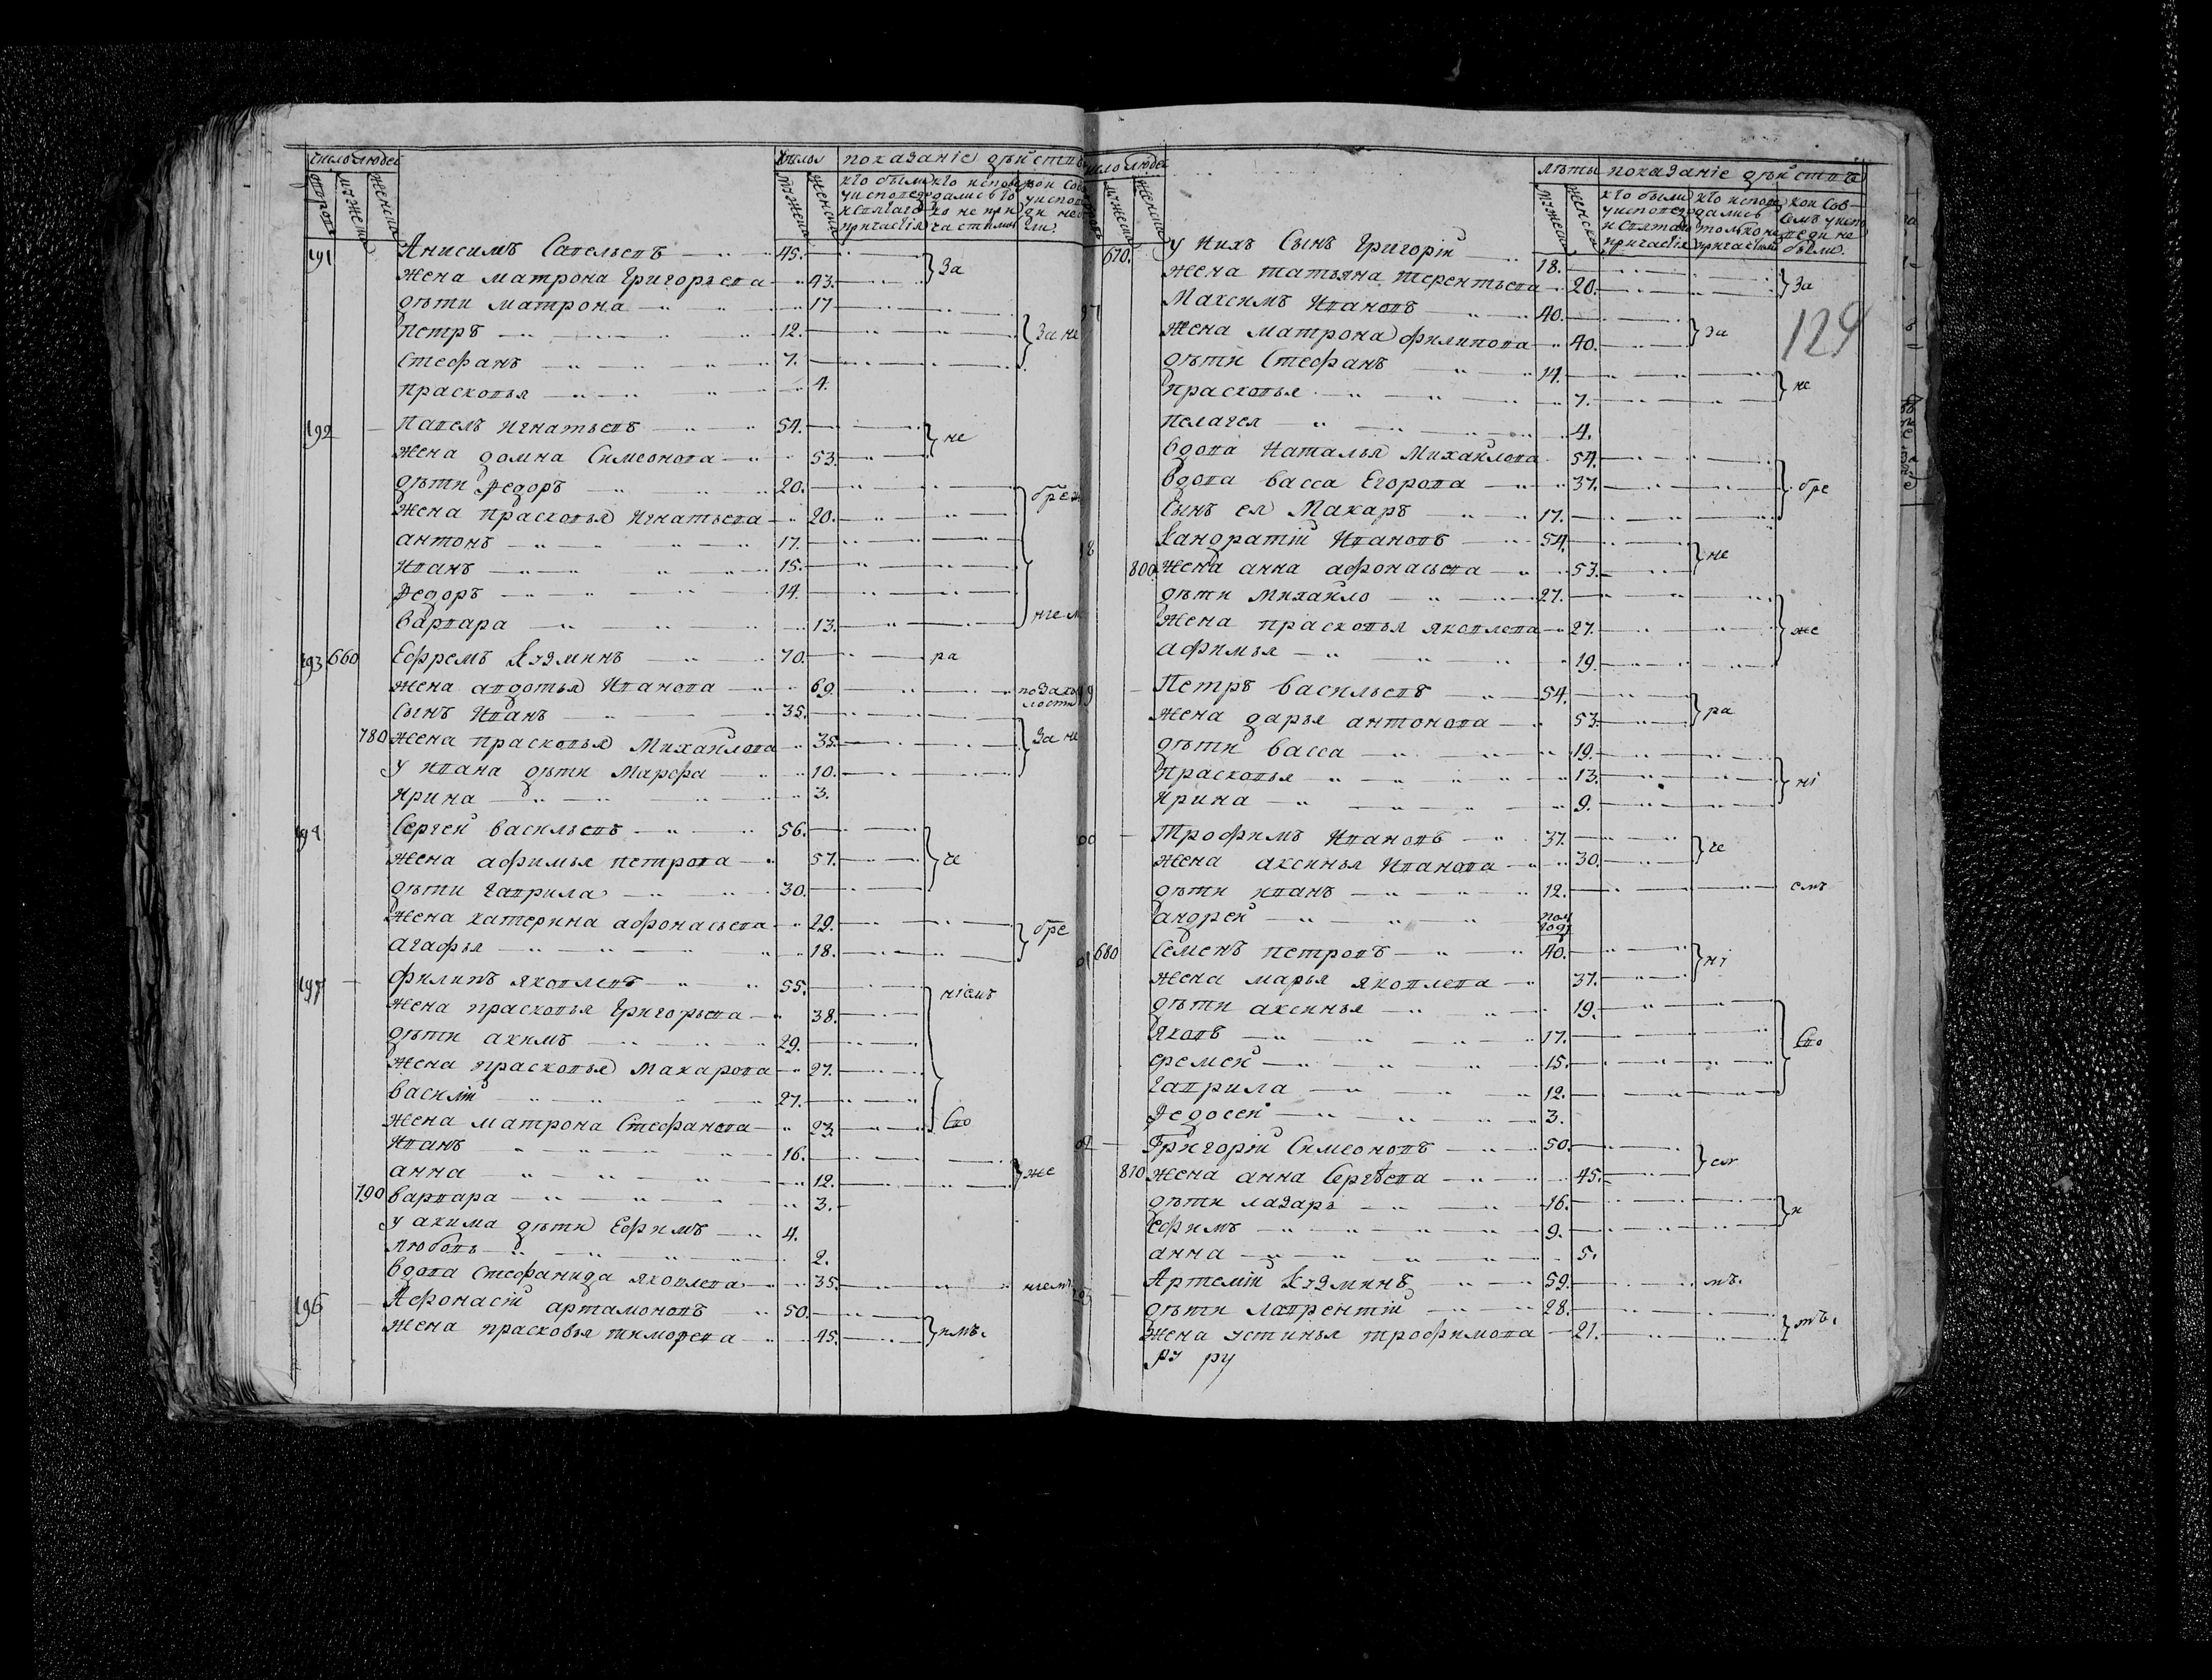 число людей лѣты показаніе дѣйствъ
дворовъ мужеска женска мужеска женска
кто были кто исповѣ
у исповеди дались то
и святаго ко не при
причастія частились
191 Анисимъ Савельевъ 45. За
жена матрона Григорьева 43.
дѣти матрона 17
Петръ 12. За не
Стефанъ 7.
прасковья 4.
192 Павелъ Игнатьевъ 54. не
жена домна Симеонова 53.
дѣти Ѳедоръ 20. бреж
жена прасковья Игнатьева 20.
антонъ 17.
Иванъ 15.
Ѳедоръ 14.
варвара 13.
193 660 Ефремъ Кузминъ 70. ра
жена авдотья Иванова 69.
сынъ Иванъ 35.
780 жена прасковья Михайлова 35. За не
у ивана дѣти Марфа 10.
Ирина 3.
194 Сергей васильевъ 56. че
жена афимья петрова 57.
дѣти гаврила 30.
жена катерина афонасьева 29. бре
агафья 18.
филипъ яковлевъ 55. ніемъ
жена прасковья Григорьева 38.
дѣти акимъ 29.
жена прасковья Макарова 27.
василій 27.
жена матрона Стефанова 23. Сво
Иванъ 16.
анна 12. же
790 варвара 3.
у акима дѣти Ефимъ 4.
любовь 2.
вдова Стефанида яковлева 35. нием
196 Афонасій артамоновъ 50. имъ.
жена прасковья тимофева 45.
число людей лѣты показаніе дѣйствъ
мужеска женска мужеска женска
кто были кто испове кои сов
у исповеди дались семъ у испо
и святаго только не веди не
причастія причастились были.
670. у нихъ Сынъ Григорій 18. За
жена татьяна терентьева 20.
129
97 Максимъ Ивановъ 40. За
жена матрона филипова 40.
дѣти Стефанъ 14. не
прасковья 7.
пелагея 4.
вдова Наталья Михайлова 54. бре
вдова васса Егорова 37.
Сынъ ея Макаръ 17.
98 Кандратій Ивановъ 54. не
800 жена анна афонасьева 53.
дѣти Михайло 27. же
жена прасковья яковлева 27.
афимья 19.
99 Петръ васильевъ 54. ра
жена дарья антонова 53.
дѣти васса 19. ні
прасковья 13.
Ирина 9.
00 Трофимъ Ивановъ 37. че
жена аксинья Иванова 30.
дѣти иванъ 12. емъ
андрей пол году
01 680 Семенъ петровъ 40. ні
жена марья яковлева 37.
дѣти аксинья 19. Сво
Яковъ 17.
15.
гаврила 12.
Ѳедосей 3.
02 Григорій Симеоновъ 50. ем
810 жена анна Сергѣева 45.
дѣти лазарь 16. и
Ефимъ 9.
анна 5.
03 Артемій Кузминъ 59. мъ.
дѣти лаврентій 28. мъ.
жена устинья трофимова 21.
ру ру